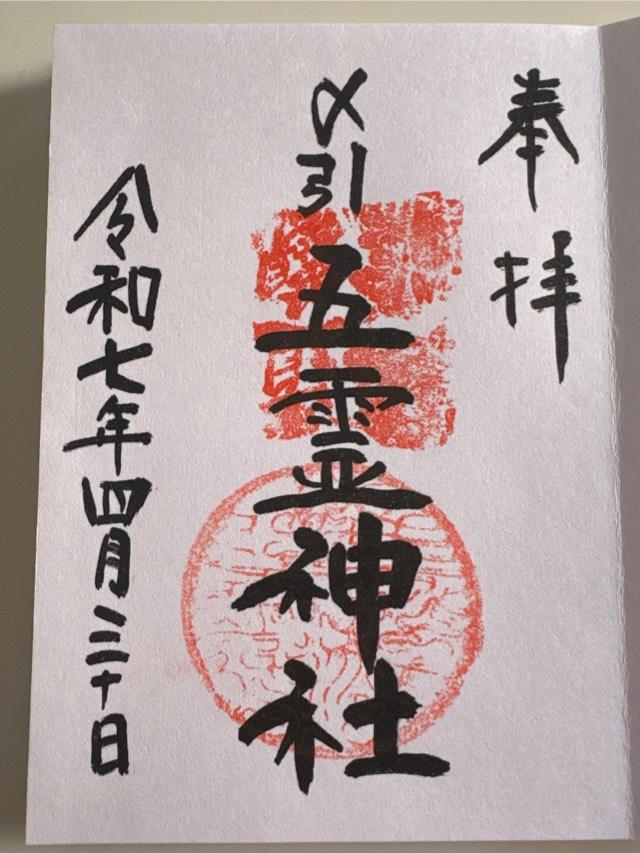 奉拝
〆引
五霊神社
令和七年四月三十日